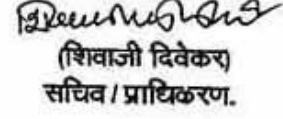 (शिवाजी दिवेकर)
सचिव / प्राधिकरण.